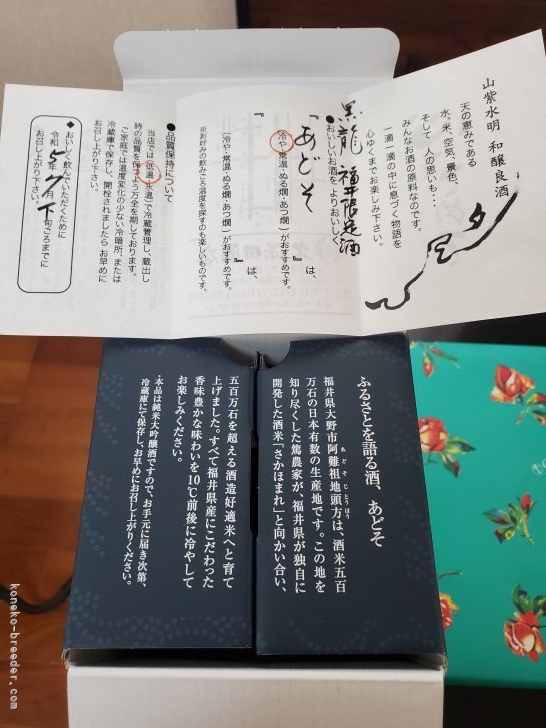 山紫水明 和醸良酒
天の恵みである
水、米、空気、景色、
そして 人の思いも・・・
みんなお酒の原料なのです。
一滴一滴の中に息づく物語を
心ゆくまでお楽しみ下さい。
黒龍 福井限定酒
●おいしいお酒をよりおいしく
『あどそ
』は、
(冷や・常温・ぬる燗・あつ燗)がおすすめです。
『
』は、
(冷や・常温・ぬる燗・あつ燗)がおすすめです。
※お好みの飲みごろ温度を探すのも楽しいものです。
●品質保持について
当店では(低温
温)で冷蔵管理し、蔵出し
時の品質を保つよう万全を期しております。
ご家庭では温度変化の少ない冷暗所、または
冷蔵庫で保存し、開栓されましたらお早めに
お召し上がり下さい。
◆おいしく飲んでいただくために
令和5年7月下旬ごろまでに
お召し上がり下さい。
ふるさとを語る酒、あどそ
あどそじとうほう
福井県大野市阿難祖地頭方は、酒米五百
万石の日本有数の生産地です。この地を
知り尽くした篤農家が、福井県が独自に
開発した酒米「さかほまれ」と向かい合い、
五百万石を超える酒造好適米へと育て
上げました。すべて福井県産にこだわった
香味豊かな味わいを10℃前後に冷やして
お楽しみください。
・本品は純米大吟醸酒ですので、お手元に届き次第、
冷蔵庫にて保存し、お早めにお召し上がりください。
koneko-breeder.com